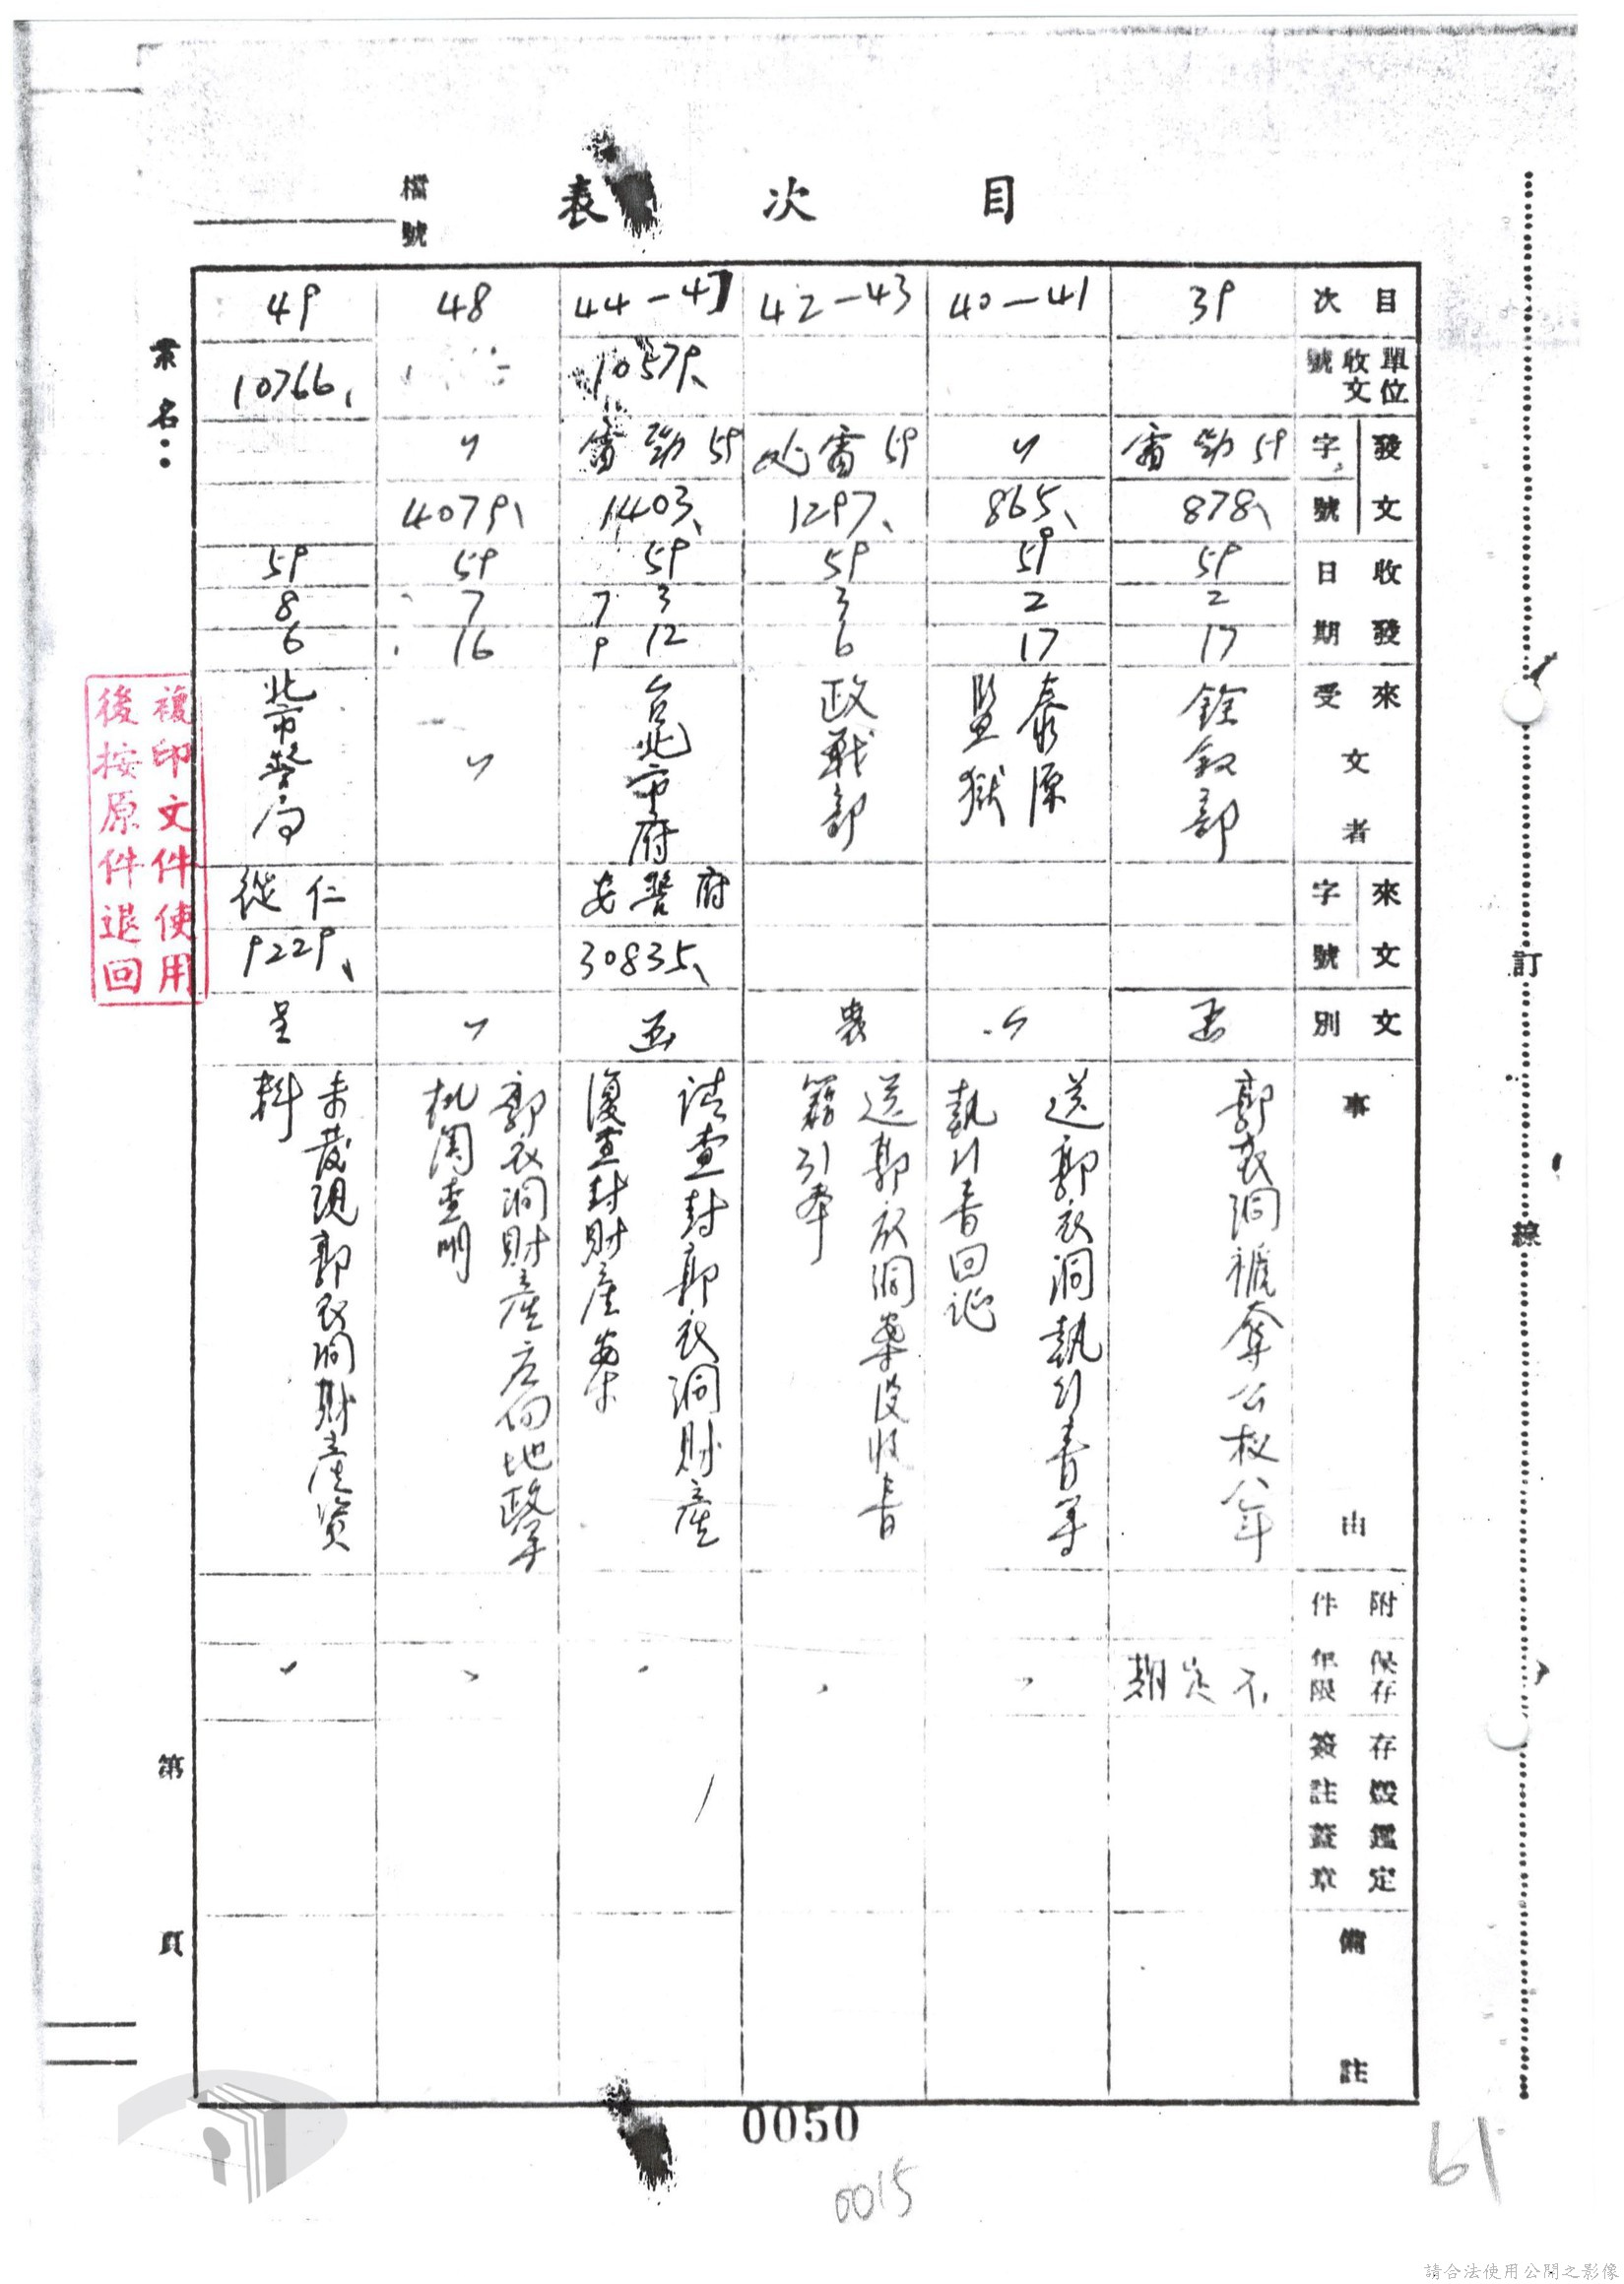 目次表
檔號
案名：
目次
單位收文號
發文字號
收發日期
來受文者
來文字號
文別
事由
附件
保存年限
存燬鑑定簽註蓋章
備註
39
雷勁59
878、
59
2
17
銓敘部
函
郭衣洞褫奪公權八年
不定期
40—41
〃
865、
59
2
17
泰源
監獄
〃
送郭衣洞執行書等
執行書回証
〃
42—43
59
1297、
59
3
6
政戰部
送郭衣洞案沒收書
籍引奉
〃
44—47
10579、
雷勁59
1403、
59
3
12
7
9
台北市府
府警安
30835、
函
請查封郭衣洞財產
復查封財產案
〃
48
〃
4079、
59
7
16
〃
〃
郭衣洞財產應向地政
机関查明
〃
49
10766、
59
8
6
北市警局
仁
9229、
呈
未發現郭衣洞財產資
料
〃
第頁
複印文件使用
後按原件退回
訂線
0050
0015
61
請合法使用公開之影像